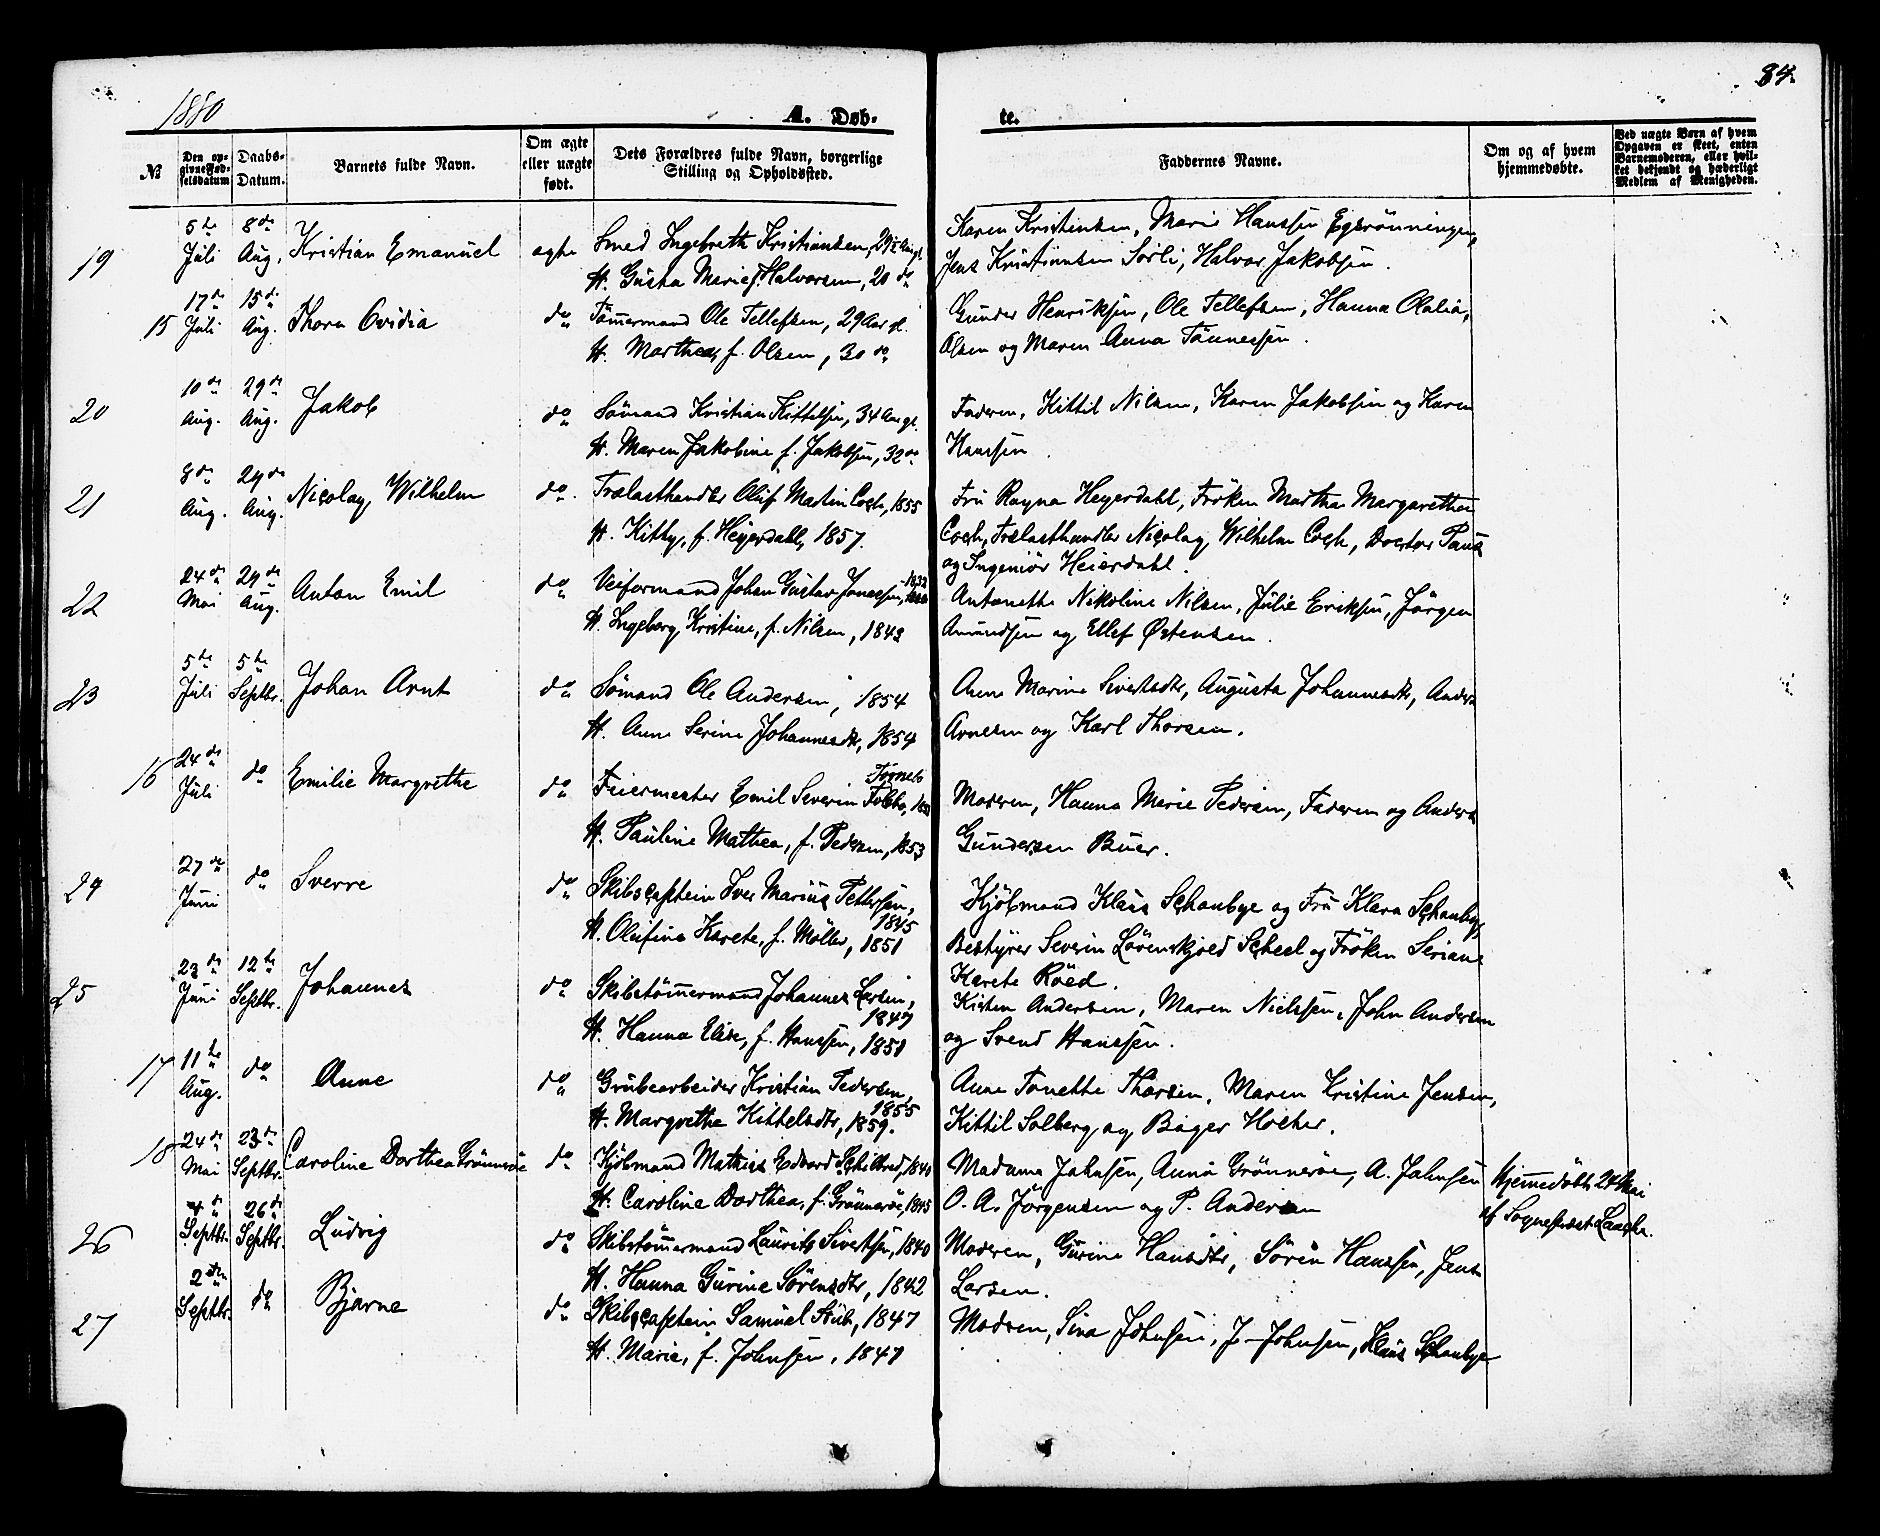 1880 A. Døb- te. 84.
№ Den op- givne Fød- selsdatum Daabs- Datum. Barnets fulde Navn. Om ægte eller uægte født. Dets Forældres fulde Navn, borgerlige Stilling og Opholdssted. Faddernes Navne. Om og af hvem hjemmedøbte. Ved uægte Børn af hvem Opgaven er skeet, enten Barnemoderen, eller hvil- ket bekjendt og hæderligt Medlem af Menigheden.
19 5te Juli 8de Aug. Kristian Emanuel ægte Smed Ingebreth Kristiansen, 29 Aar gl.
H. Gusta Marie f. Halvorsen, 20 do
Karen Kristensen, Marie Hanssen Egsrönningen,
Jens Kristiansen Sörli, Halvor Jakobsen.
15 17de Juli 15de Aug. Thora Ovidia do Tömmermand Ole Tellefsen, 29 Aar gl.
H. Marthea, f. Olsen, 30 do
Gunder Henriksen, Ole Tellefsen, Hanna Olalia,
Olsen og Maren Anna Tönnesen.
20 10de Aug. 29de Aug. Jakob do Sömand Kristian Kittelsen, 34 Aar gl.
H. Maren Jakobine f. Jakobsen, 32 do
Faderen, Kittil Nilsen, Karen Jakobsen og Karen
Hanssen
21 8de Aug. 29de Aug. Nicolay Wilhelm do. Trælasthandler Oluf Martin Coch, 1855
H. Kitty, f. Heyerdahl, 1857.
Fru Ragna Heyerdahl, Fröken Martha Margarethe
Coch, Trælasthandler Nicolay Wilhelm Coch, Doctor Paus
og Ingeniör Heierdahl.
22 24de Mai 29de Aug. Anton Emil do Veiformand Johan Gustav Jonassen, 1832
H. Ingeborg Kristine, f. Nilsen, 1843
Antonette Nikoline Nilsen, Julie Eriksen, Jörgen
Amundsen og Ellef Østensen.
23 5te Juli 5te Septbr. Johan Arnt do Sömand Ole Andersen, 1854
H. Anne Serine Johannesdtr, 1854
Anne Marine Sivertsdtr, Augusta Johannesdtr, Anders
Arnesen og Karl Thorsen.
16 24de Juli do Emilie Margrethe do Feiermester Emil Severin Folsbo,
H. Pauline Mathea, f. Pedersen, 1853
Moderen, Hanna Marie Pedersen, Faderen og Anders
Gundersen Buer.
24 27de Juni do Sverre do Skibscaptein Iver Marius Pettersen, 1845
H. Olufine Karete, f. Möller, 1851
Kjöbmand Klaus Schanbye og Fru Klara Schanbye,
Bestyrer Severin Lövenskjold Scheel og Fröken Seriane
Karete Röed.
25 23de Juni 12te Septbr. Johannes do Skibstömmermand Johannes Larsen, 1847
H. Hanna Elise, f. Hanssen, 1851
Kisten Andersen, Maren Nielssen, John Andersen
og Svend Hanssen.
17 11te Aug. do Anne do Grubearbeider Kristian Pedersen, 1855
H. Margrethe Kittelsdtr, 1859.
Anne Tonette Thorsen, Maren Kristine Jensen,
Kittil Solberg og Bager Holter.
18 24de Mai 23de Septbr. Caroline Dorthea Grönneröe do Kjöbmand Mathias Edvard Schilbred, 1840
H. Caroline Dorthea, f. Grönneröe, 1845
Madame Jahnsen, Anna Grönneröe, A. Jahnsen
O. A. Jörgensen og P. Andersen
Hjemmedöbt 24 Mai
af Sogneprest Laache.
26 4de Septbr. 26de Septbr. Ludvig do Skibstömmermand Laurits Sivertsen, 1840
H. Hanna Gurine Sörensdtr, 1842
Moderen, Gurine Hansdtr, Sören Hanssen, Jens
Larsen.
27 2den Septbr. do Bjarne do Skibscaptein Samuel Stub, 1847
H. Marie, f. Johnsen, 1847
Modren, Sina Johnsen, J. Johnsen, Klaus Schanbye